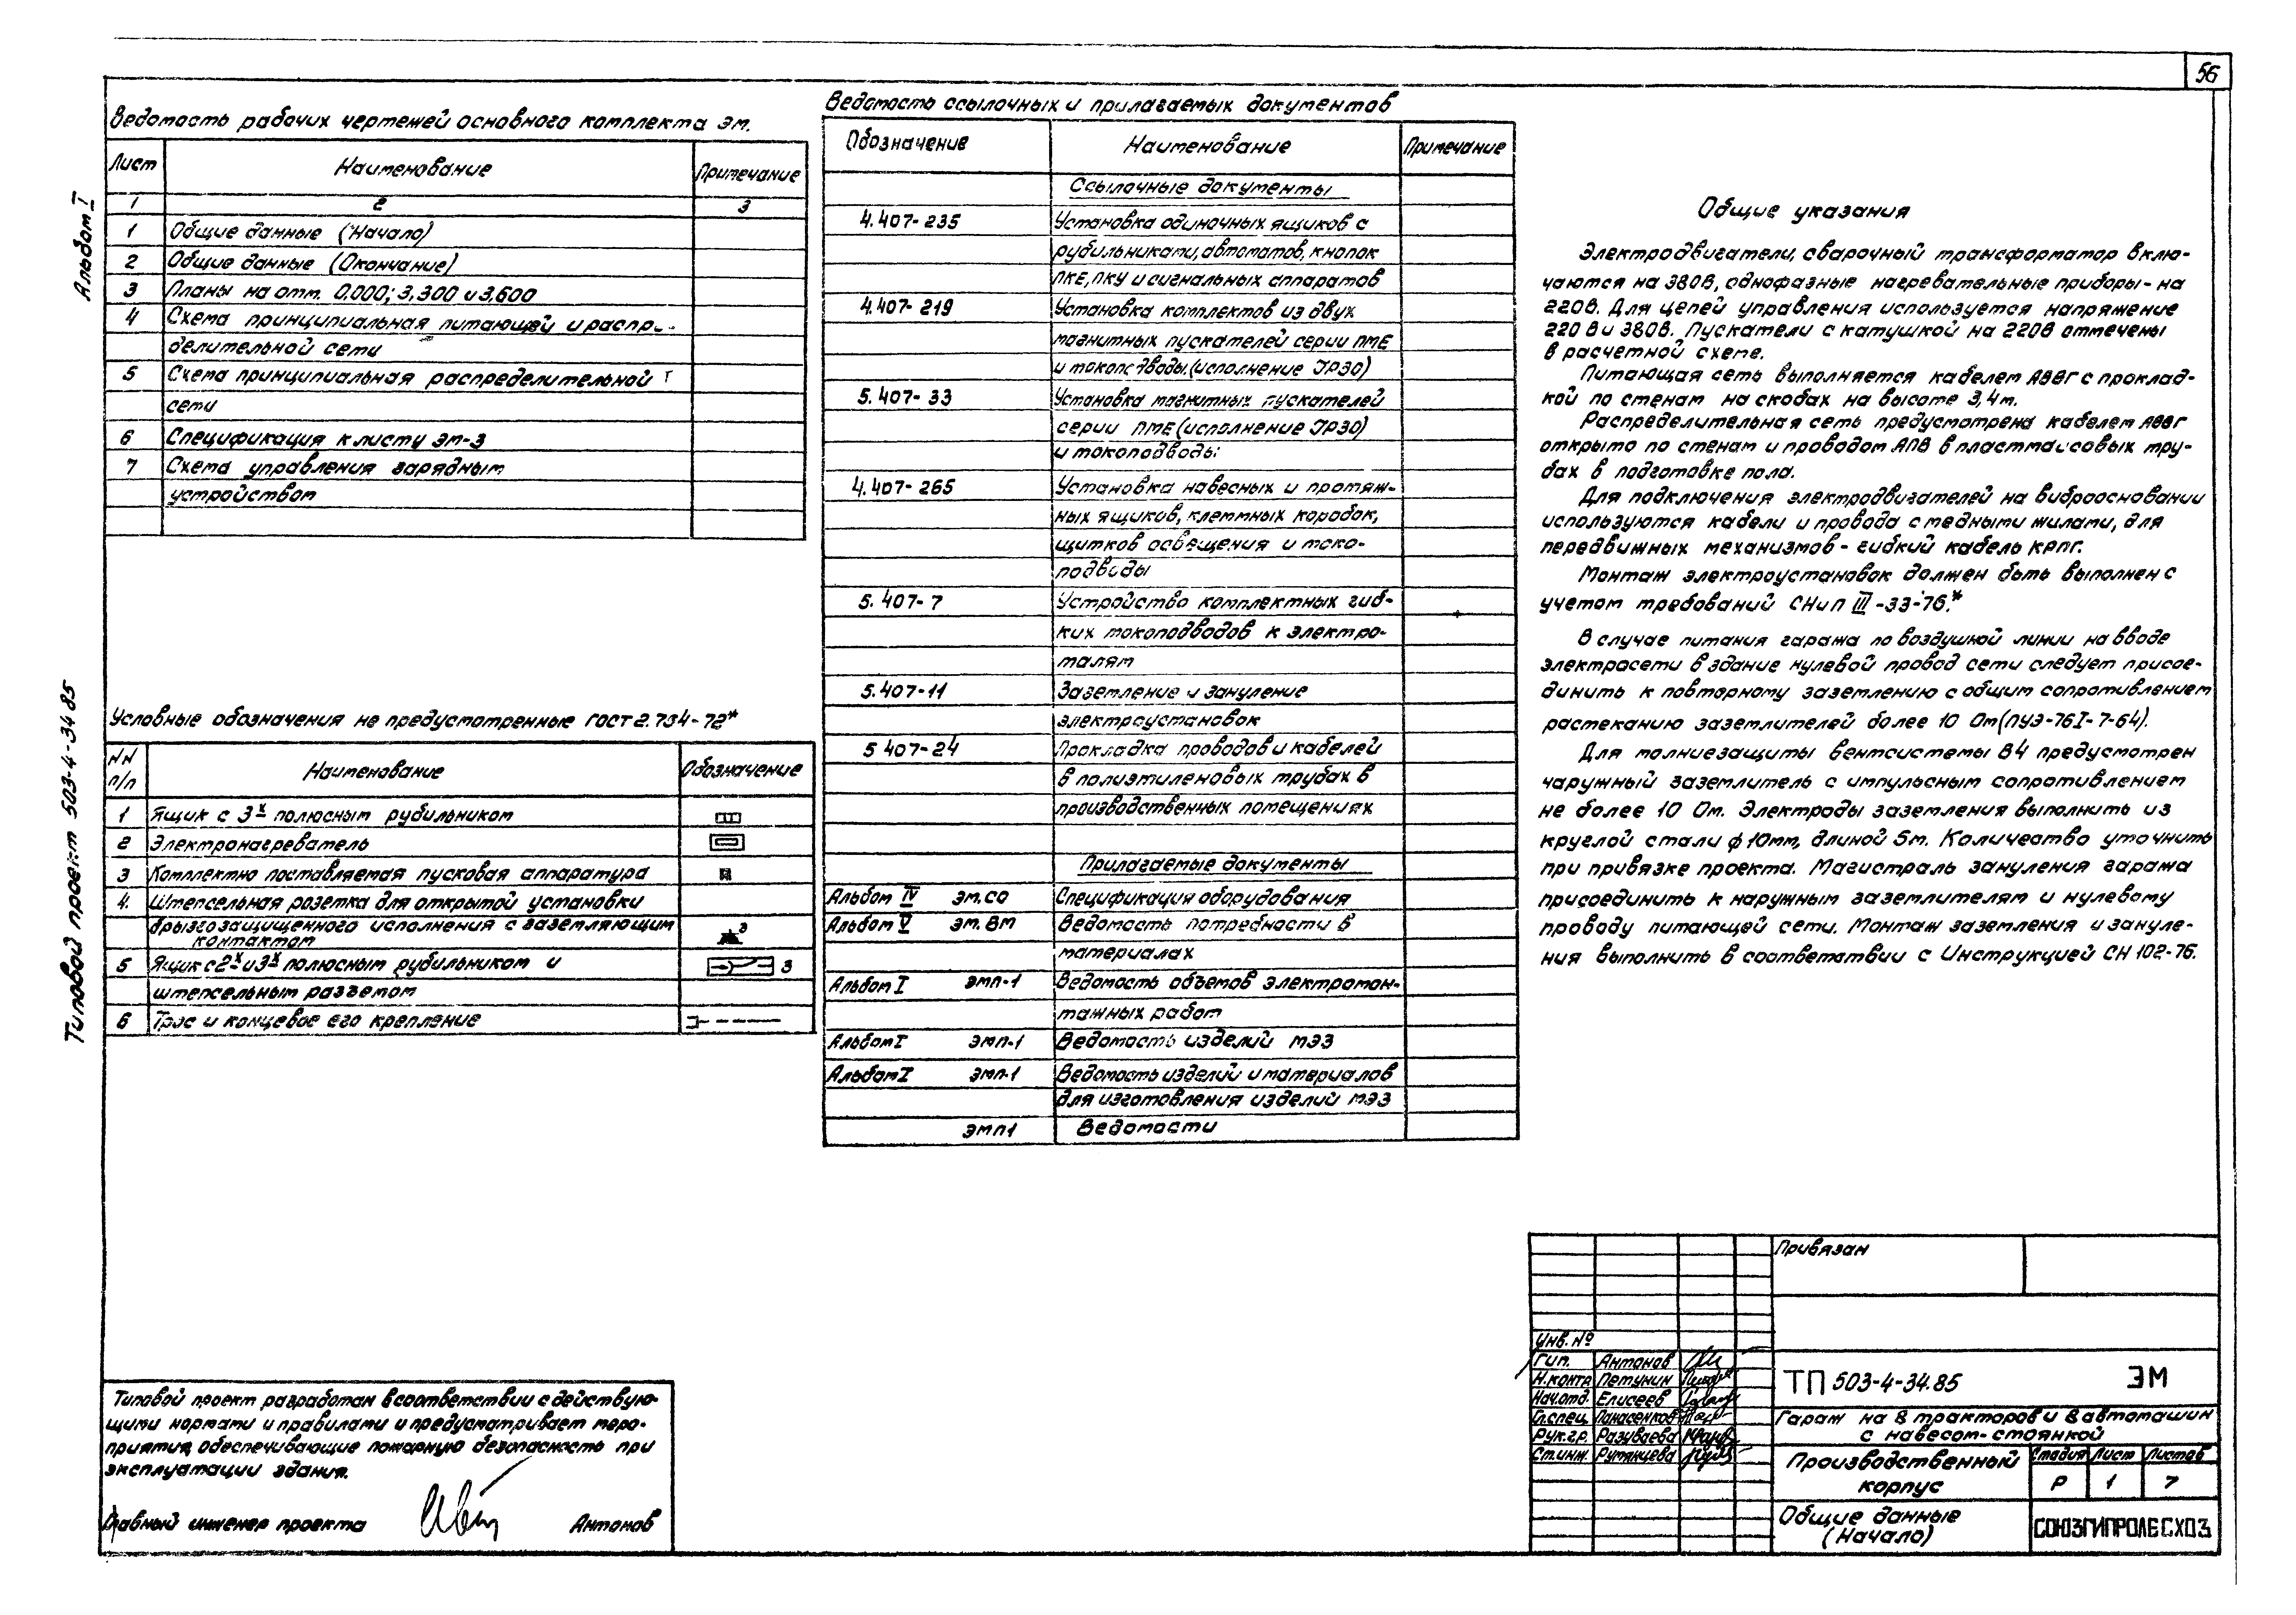 56
Альбом I
Типовой проект 503-4-34.85
Ведомость рабочих чертежей основного комплекта ЭМ.
Лист Наименование Примечание
1 2 3
1 Общие данные (Начало)
2 Общие данные (Окончание)
3 Планы на отм. 0,000; 3,300 и 3,600
4 Схема принципиальная питающей и распре-
делительной сети
5 Схема принципиальная распределительной
сети
6 Спецификация к листу ЭМ-3
7 Схема управления зарядным
устройством
Условные обозначения не предусмотренные ГОСТ 2.754-72*
NN п/п Наименование Обозначение
1 Ящик с 3х полюсным рубильником
2 Электронагреватель
3 Комплектно поставляемая пусковая аппаратура
4. Штепсельная розетка для открытой установки
брызгозащищенного исполнения с заземляющим
контактом
5 Ящик с 2х и 3х полюсным рубильником и 3
штепсельным разъемом
6 Трос и концевое его крепление
Типовой проект разработан в соответствии с действую-
щими нормами и правилами и предусматривает меро-
приятия, обеспечивающие пожарную безопасность при
эксплуатации здания.
Главный инженер проекта Антонов
Ведомость ссылочных и прилагаемых документов
Обозначение Наименование Примечание
Ссылочные документы
4.407-235 Установка одиночных ящиков с
рубильниками, автоматов, кнопок
ПКЕ, ПКУ и сигнальных аппаратов
4.407-219 Установка комплектов из двух
магнитных пускателей серии ПМЕ
и токоподводы. (исполнение JP30)
5.407-33 Установка магнитных пускателей
серии ПМЕ (исполнение JP30)
и токоподводы
4.407-265 Установка навесных и протяж-
ных ящиков, клеммных коробок,
щитков освещения и токо-
подводы
5.407-7 Устройство комплектных гиб-
ких токоподводов к электро-
талям
5.407-11 Заземление и зануление
электроустановок
5.407-24 Прокладка проводов и кабелей
в полиэтиленовых трубах в
производственных помещениях
Прилагаемые документы
Альбом IV ЭМ.СО Спецификация оборудования
Альбом V ЭМ.ВМ Ведомость потребности в
материалах
Альбом I ЭМП-1 Ведомость объемов электромон-
тажных работ
Альбом I ЭМП-1 Ведомость изделий МЭЗ
Альбом I ЭМП-1 Ведомость изделий и материалов
для изготовления изделий МЭЗ
ЭМП1 Ведомости
Общие указания
Электродвигатели, сварочный трансформатор вклю-
чаются на 380В, однофазные нагревательные приборы - на
220В. Для цепей управления используется напряжение
220В и 380В. Пускатели с катушкой на 220В отмечены
в расчетной схеме.
Питающая сеть выполняется кабелем АВВГ с проклад-
кой по стенам на скобах на высоте 3,4м.
Распределительная сеть предусмотрена кабелем АВВГ
открыто по стенам и проводом АПВ в пластмассовых тру-
бах в подготовке пола.
Для подключения электродвигателей на виброосновании
используются кабели и провода с медными жилами, для
передвижных механизмов - гибкий кабель КРПГ.
Монтаж электроустановок должен быть выполнен с
учетом требований СНиП III-33-76.*
В случае питания гаража по воздушной линии на вводе
электросети в здание нулевой провод сети следует присое-
динить к повторному заземлению с общим сопротивлением
растеканию заземлителей более 10 Ом (ПУЭ-76 I-7-64).
Для молниезащиты вентсистемы В4 предусмотрен
наружный заземлитель с импульсным сопротивлением
не более 10 Ом. Электроды заземления выполнить из
круглой стали ϕ10мм, длиной 5м. Количество уточнить
при привязке проекта. Магистраль зануления гаража
присоединить к наружным заземлителям и нулевому
проводу питающей сети. Монтаж заземления и зануле-
ния выполнить в соответствии с Инструкцией СН 102-76.
Привязан
Инв. №
Гип. Антонов
Н.контр Петунин
Нач.отд. Елисеев
Гл.спец. Панасенков
Рук.гр. Разуваева
Ст.инж Румянцева
ТП 503-4-34.85 ЭМ
Гараж на 8 тракторов и 8 автомашин
с навесом-стоянкой
Производственный
корпус
Стадия Лист Листов
Р 1 7
Общие данные
(Начало)
СОЮЗГИПРОЛЕСХОЗ